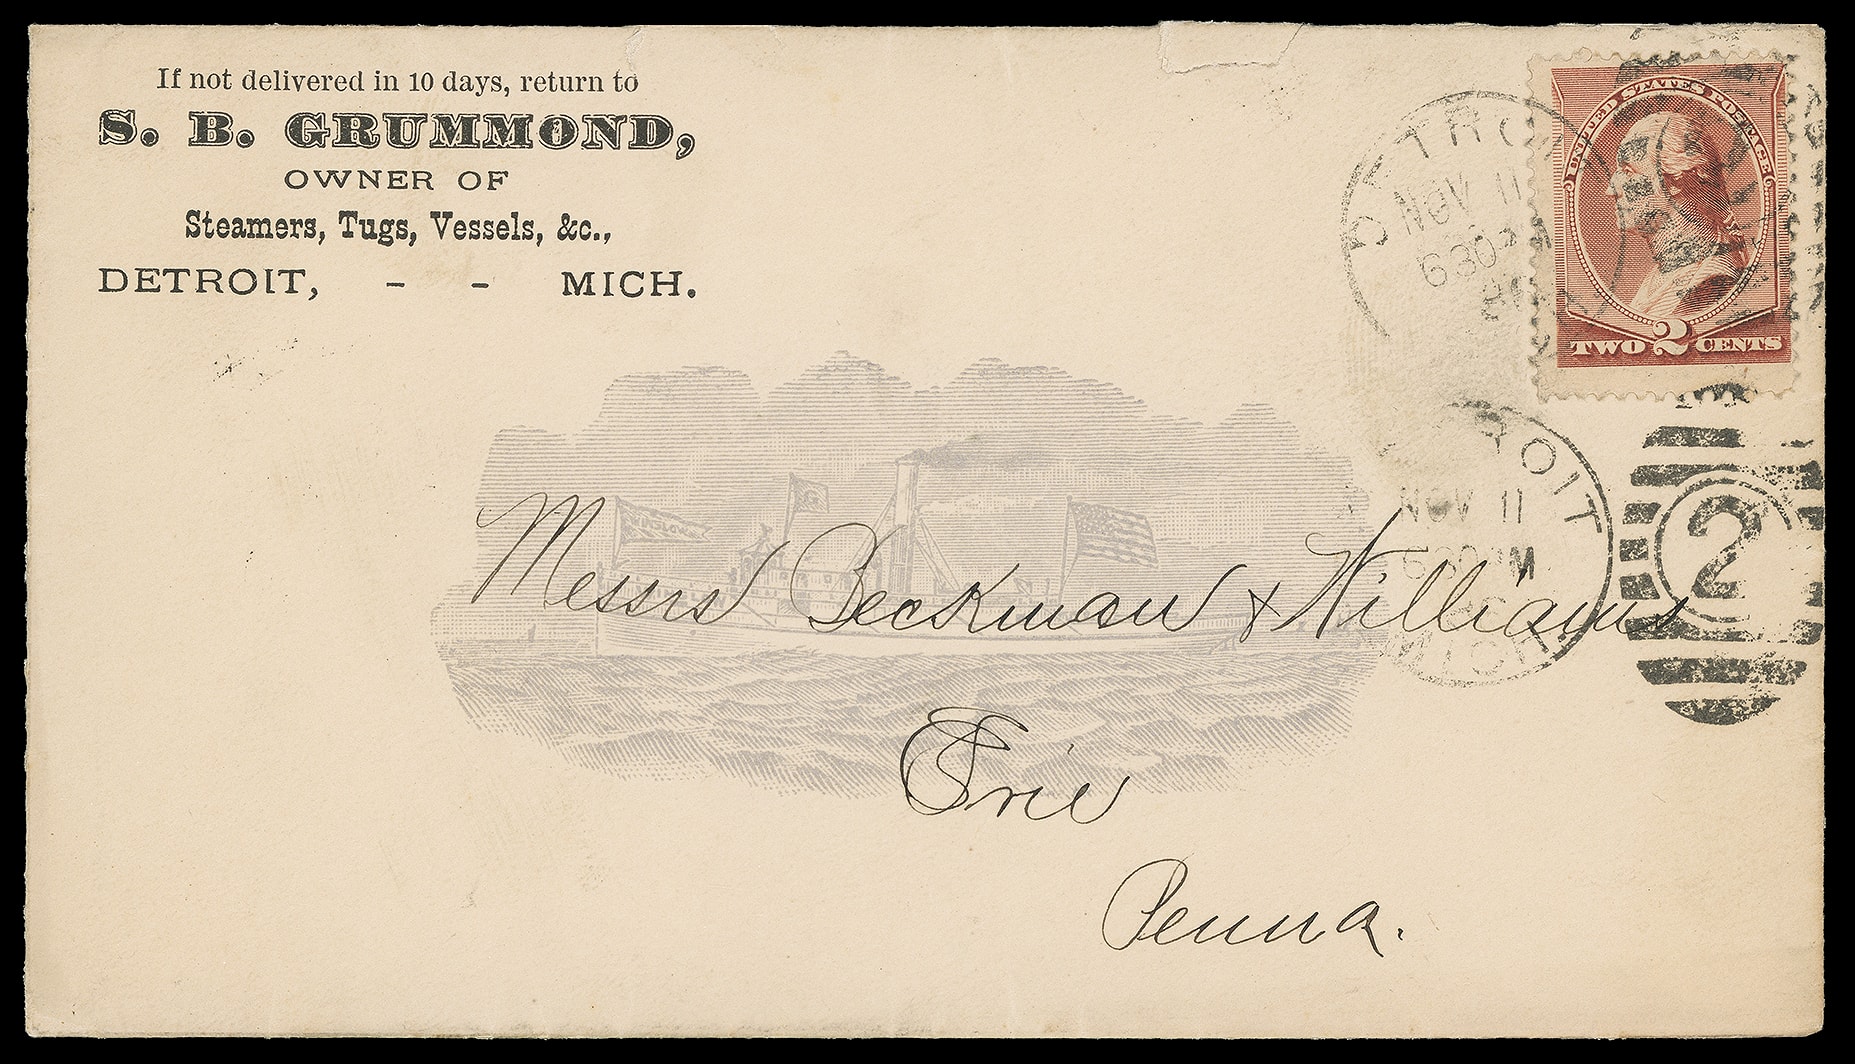 If not delivered in 10 days, return to
S. B. GRUMMOND,
OWNER OF
Steamers, Tugs, Vessels, &c.,
DETROIT, - - MICH.
DETROI
NOV 11
630
UNITED STATES POSTAGE
TWO 2 CENTS
ROIT
NOV 11
MICH
2
WINSLOW
G
Messrs Beckman & Williams
Erie
Penna.